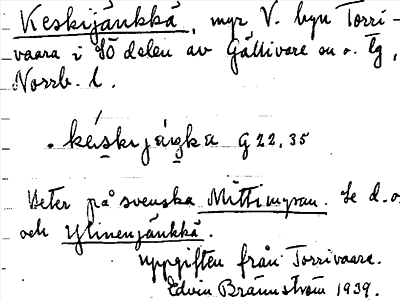 Keskijänkkä, myr V. byn Torri-
vaara i SÖ delen av Gällivare sn o. tg,
Norrb. l.
. kèskijäŋkæ G 22, 35
Heter på svenska Mittimyran. Se d. o.
och Ylinenjänkkä.
Uppgiften från Torrivaara.
Edvin Brännström 1939.